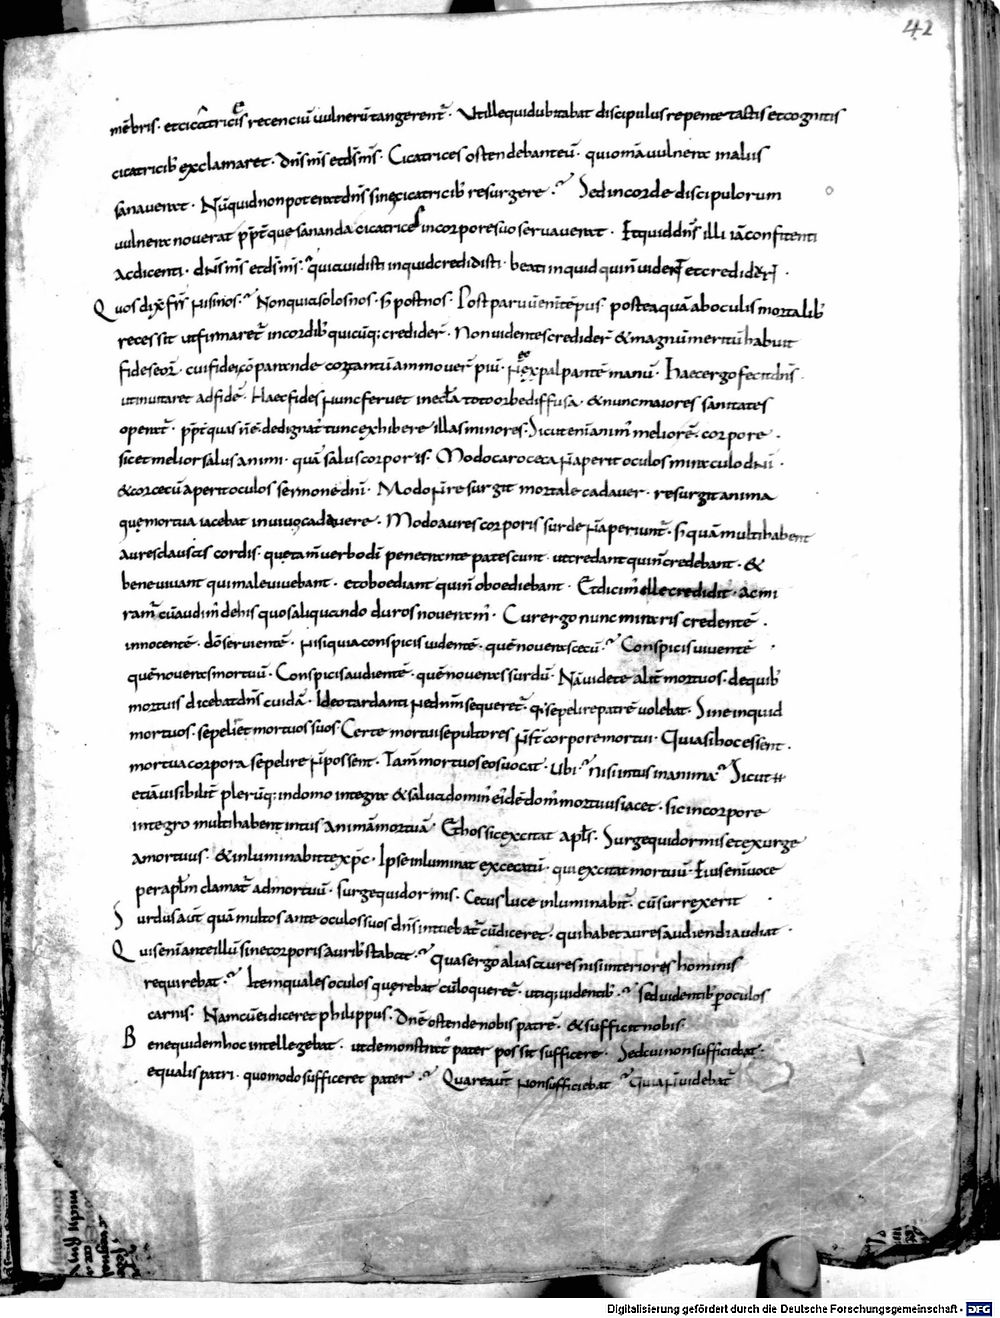 42
mēbris · et cicatrices recenciū uulnerū tangerent̄ · Ut ille qui dubitabat discipulus repente tactis et cognitis
cicatricib; exclamaret · dn̄s m̄s et d̄s m̄s · Cicatrices ostendebant eū · qui omīa uulnera in aliis
sanauerat · Nūquid non poterat dn̄s sine cicatricib; resurgere · Sed in corde discipulorum
uulnera nouerat pp̄t que sananda cicatrices in corpore suo seruauerat · Et quid dn̄s illi iā confitenti
ac dicenti · dn̄s m̄s et d̄s m̄s · quia uidisti inquid credidisti · beati inquid qui n̄ uident et crediderī ·
Quos dix̄ frs̄ nisi nos · Non quia solos nos · s; post nos · Post paruū enī tēpus · posteaquā ab oculis mortalib;
recessit ut firmaret̄ in cordib; quicūq; crediderī · Non uidentes credider̄ & magnū meritū habuit
fides eoꝝ · cui fidei cōparande cor tantū ammouer̄ piū · n̄ eo & palpantē manū · Haec ergo fecit dn̄s ·
ut inuitaret ad fidē · Haec fides nunc feruet in ecl̄a toto orbe diffusa · & nunc maiores sanitates
operat̄ · pp̄t quas n̄ ē dedignat̄ tunc exhibere illas minores · Sicut enī animꝰ meliorē corpore ·
sic et melior salus animi · quā salus corporis · Modo caro ceca n̄ aperit oculos miraculo dn̄i ·
& cor cecū aperit oculos sermone dn̄i · Modo n̄ resurgit mortale cadauer · resurgit anima
quę mortua iacebat in uiuo cadauere · Modo aures corporis surde n̄ aperiunt̄ · s; quā multi habent
aures clausas cordis · quę tam̄ uerbo dī penetrante patescunt · ut credant qui n̄ credebant · &
bene uiuant qui male uiuebant · et oboediant qui n̄ oboediebant · Et dicimꝰ ille credidit · ac mi
ramꝰ cū audimꝰ de his quos aliquando duros noueramꝰ · Cur ergo nunc miraris credentē ·
innocentē · dō seruientē · nisi quia conspicis uidentē · quē noueras cecū · Conspicis uiuentē
quē noueras mortuū · Conspicis audientē · quē noueras surdū · Nā uidete alit̄ mortuos · de quib;
mortuis dicebat dn̄s cuidā · Ideo tardanti ne dn̄m sequeret̄ · q; sepelire patrē uolebat · Sine inquid
mortuos · sepeliet mortuos suos · Certe mortui sepultores n̄ st̄ corpore mortui · Quia si hoc essent ·
mortua corpora sepelire n̄ possent · Tam̄ mortuos eos uocat · ubi · nisi intus in anima · Sicut
etiā uisibilit̄ plerūq; in domo integra & salua dominꝰ eide domꝰ mortuus iacet · sic in corpore
integro multi habent intus animā mortuā · Et hos sic excitat apl̄s · Surge qui dormis et exurge
a mortuis · & inluminabit te xp̄c · Ipse inluminat excecatū · qui excitat mortuū · Eius enī uoce
per apl̄m clamat̄ ad mortuū · surge qui dormis · Cecus luce inluminabit̄ · cū surrexerit ·
Surdus aut̄ quā multos ante oculos suos dn̄s intuebat̄ cū diceret · qui habet aures audiendi audiat ·
Quis enī ante illū sine corporis aurib; stabat · quas ergo alias aures nisi interiores hominis
requirebat · Item quales oculos quęrebat cū loqueret̄ · utiq; uidentib; · sed uidentib; p̄ oculos
carnis · Nam cū ei diceret philippus · Dn̄e ostende nobis patrē · & sufficit nobis
Bene quidem hoc intellegebat · ut demonstratꝰ pater possit sufficere · Sed cui non sufficiebat ·
equalis patri · quomodo sufficeret pater · Quare aut̄ non sufficiebat · quia n̄ uidebat̄
Digitalisierung gefördert durch die Deutsche Forschungsgemeinschaft - DFG